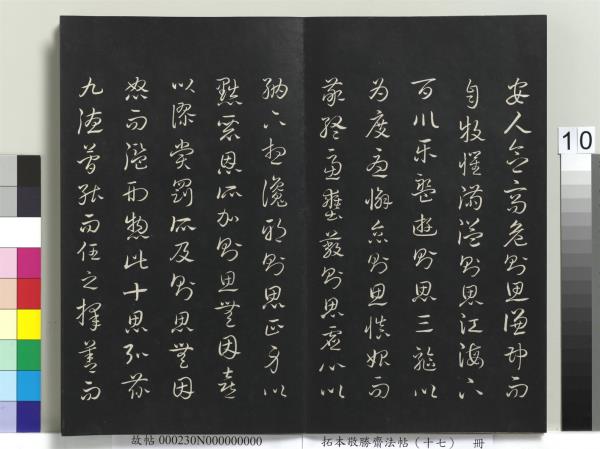 安人念高危則思謙沖而
自牧懼滿溢則思江海下
百川樂盤遊則思三驅以
為度憂懈怠則思慎始而
敬終慮壅蔽則思虛心以
納下想讒邪則思正身以
黜惡恩所加則思無因喜
以謬賞罰所及則思無因
怒而濫刑總此十思弘茲
九德簡能而任之擇善而
10
故帖 000230N000000000
拓本敬勝齋法帖(十七) 冊